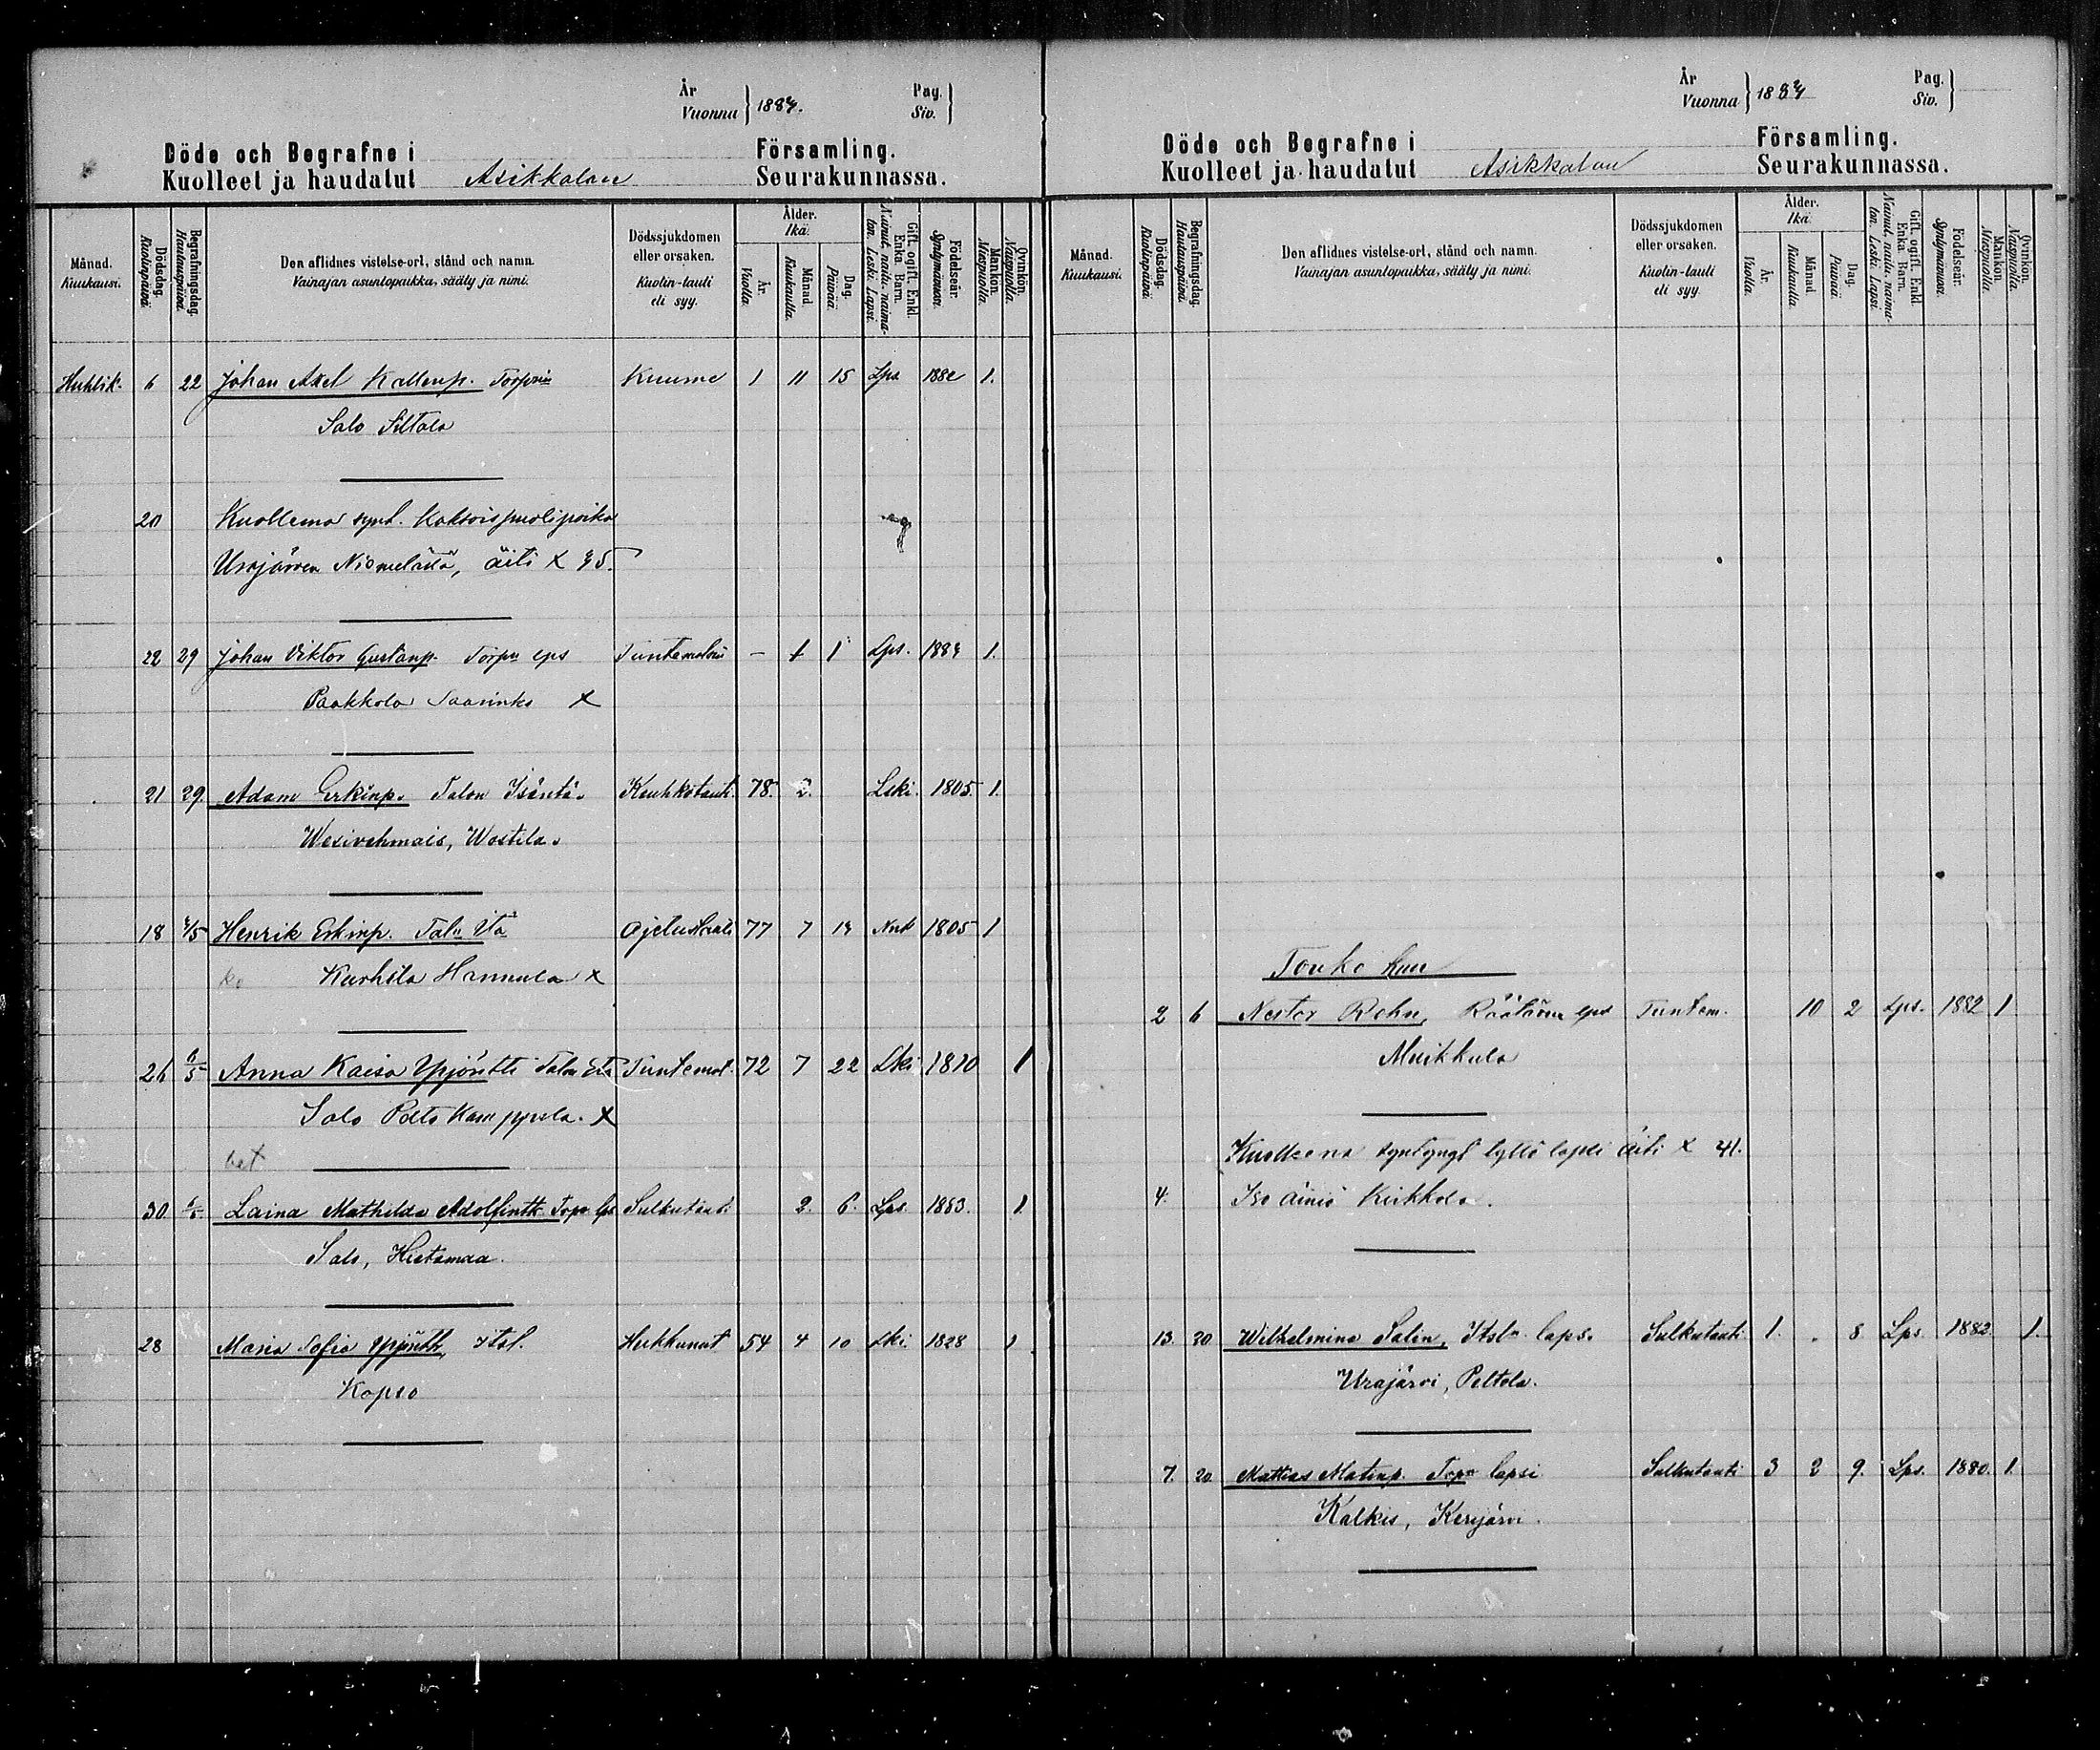 År
Vuonna } 1884.
Pag.
Siv. }
Döde och Begrafne i Församling.
Kuolleet ja haudatut Asikkalan Seurakunnassa.
Månad. Kuukausi.
Dödsdag. Kuolinpäivä.
Begrafningsdag. Hautauspäivä.
Den aflidnes vistelse-ort, stånd och namn.
Vainajan asuntopaikka, sääty ja nimi.
Dödssjukdomen eller orsaken.
Kuolin-tauti eli syy.
Ålder. Ikä.
År. Vuotta.
Månad. Kuukautta.
Dag. Päivää.
Gift, ogift. Enkl. Enka. Barn.
Nainut, nailu, naimaton. Leski. Lapsi.
Födelseår. Syntymävuosi.
Mankön. Miespuolia.
Qvinkön. Naispuolia.
Huhtik. 6 22 Johan Axel Kallenp. Torparin Kuume 1 11 15 Lps 1882 1.
Salo Siltala
20 Kuollema synt. Kaksoispuoli poika
Urajärven Niemelässä, äiti x 45.
22 29 Johan Viktor Gustanp. Torpn lps Tuntematoin - 1 1 Lps. 1884 1.
Paakkola Saarinko x
21 29. Adam Erkinp. Talon Isäntä. Keuhkotauti. 78. 2. Leki. 1805. 1.
Wesivehmais, Wostila.
18 4/5 Henrik Erkinp. Taln Itä Ajetustauti 77 7 14 Nnt 1805 1
ko Kurhila Hannula x
26 6/5 Anna Kaisa Yrjöntti Talon Etä Tuntemat. 72 7 22 Lki 1810 1
Salo Pätö Kamppola. x
bet
30. 6/5. Laina Mathilda Adolfintt. Torp. lps Sulkutauti 2. 6. Lps. 1883. 1
Salo, Hietamaa.
28 Maria Sofia Yrjöntt, Itsl. Hukkunut 54 4 10 Lki. 1828 1
Kopso
År
Vuonna } 1884
Pag.
Siv. }
Döde och Begrafne i Församling.
Kuolleet ja haudatut Asikkalan Seurakunnassa.
Månad. Kuukausi.
Dödsdag. Kuolinpäivä.
Begrafningsdag. Hautauspäivä.
Den aflidnes vistelse-ort, stånd och namn.
Vainajan asuntopaikka, sääty ja nimi.
Dödssjukdomen eller orsaken.
Kuolin-tauti eli syy.
Ålder. Ikä.
År. Vuotta.
Månad. Kuukautta.
Dag. Päivää.
Gift, ogift. Enkl. Enka. Barn.
Nainut, nailu, naimaton. Leski. Lapsi.
Födelseår. Syntymävuosi.
Mankön. Miespuolia.
Qvinkön. Naispuolia.
Touko kuu
2 6 Nestor Rehn, Räätärin lps Tuntem. 10 2 Lps. 1882 1
Muikkula
Kuollena syntynyt tyttö lapsi äiti x 41.
4. Iso äiniö Kirkkola.
13. 20 Wilhelmina Salin, Itsln laps. Sulkutauti 1. . 8 Lps. 1882. 1.
Urajärvi, Peltola.
7. 20. Mattias Matinp. Torpn lapsi Sulkutauti 3 2 9. Lps. 1880. 1.
Kalkis, Kerijärvi.